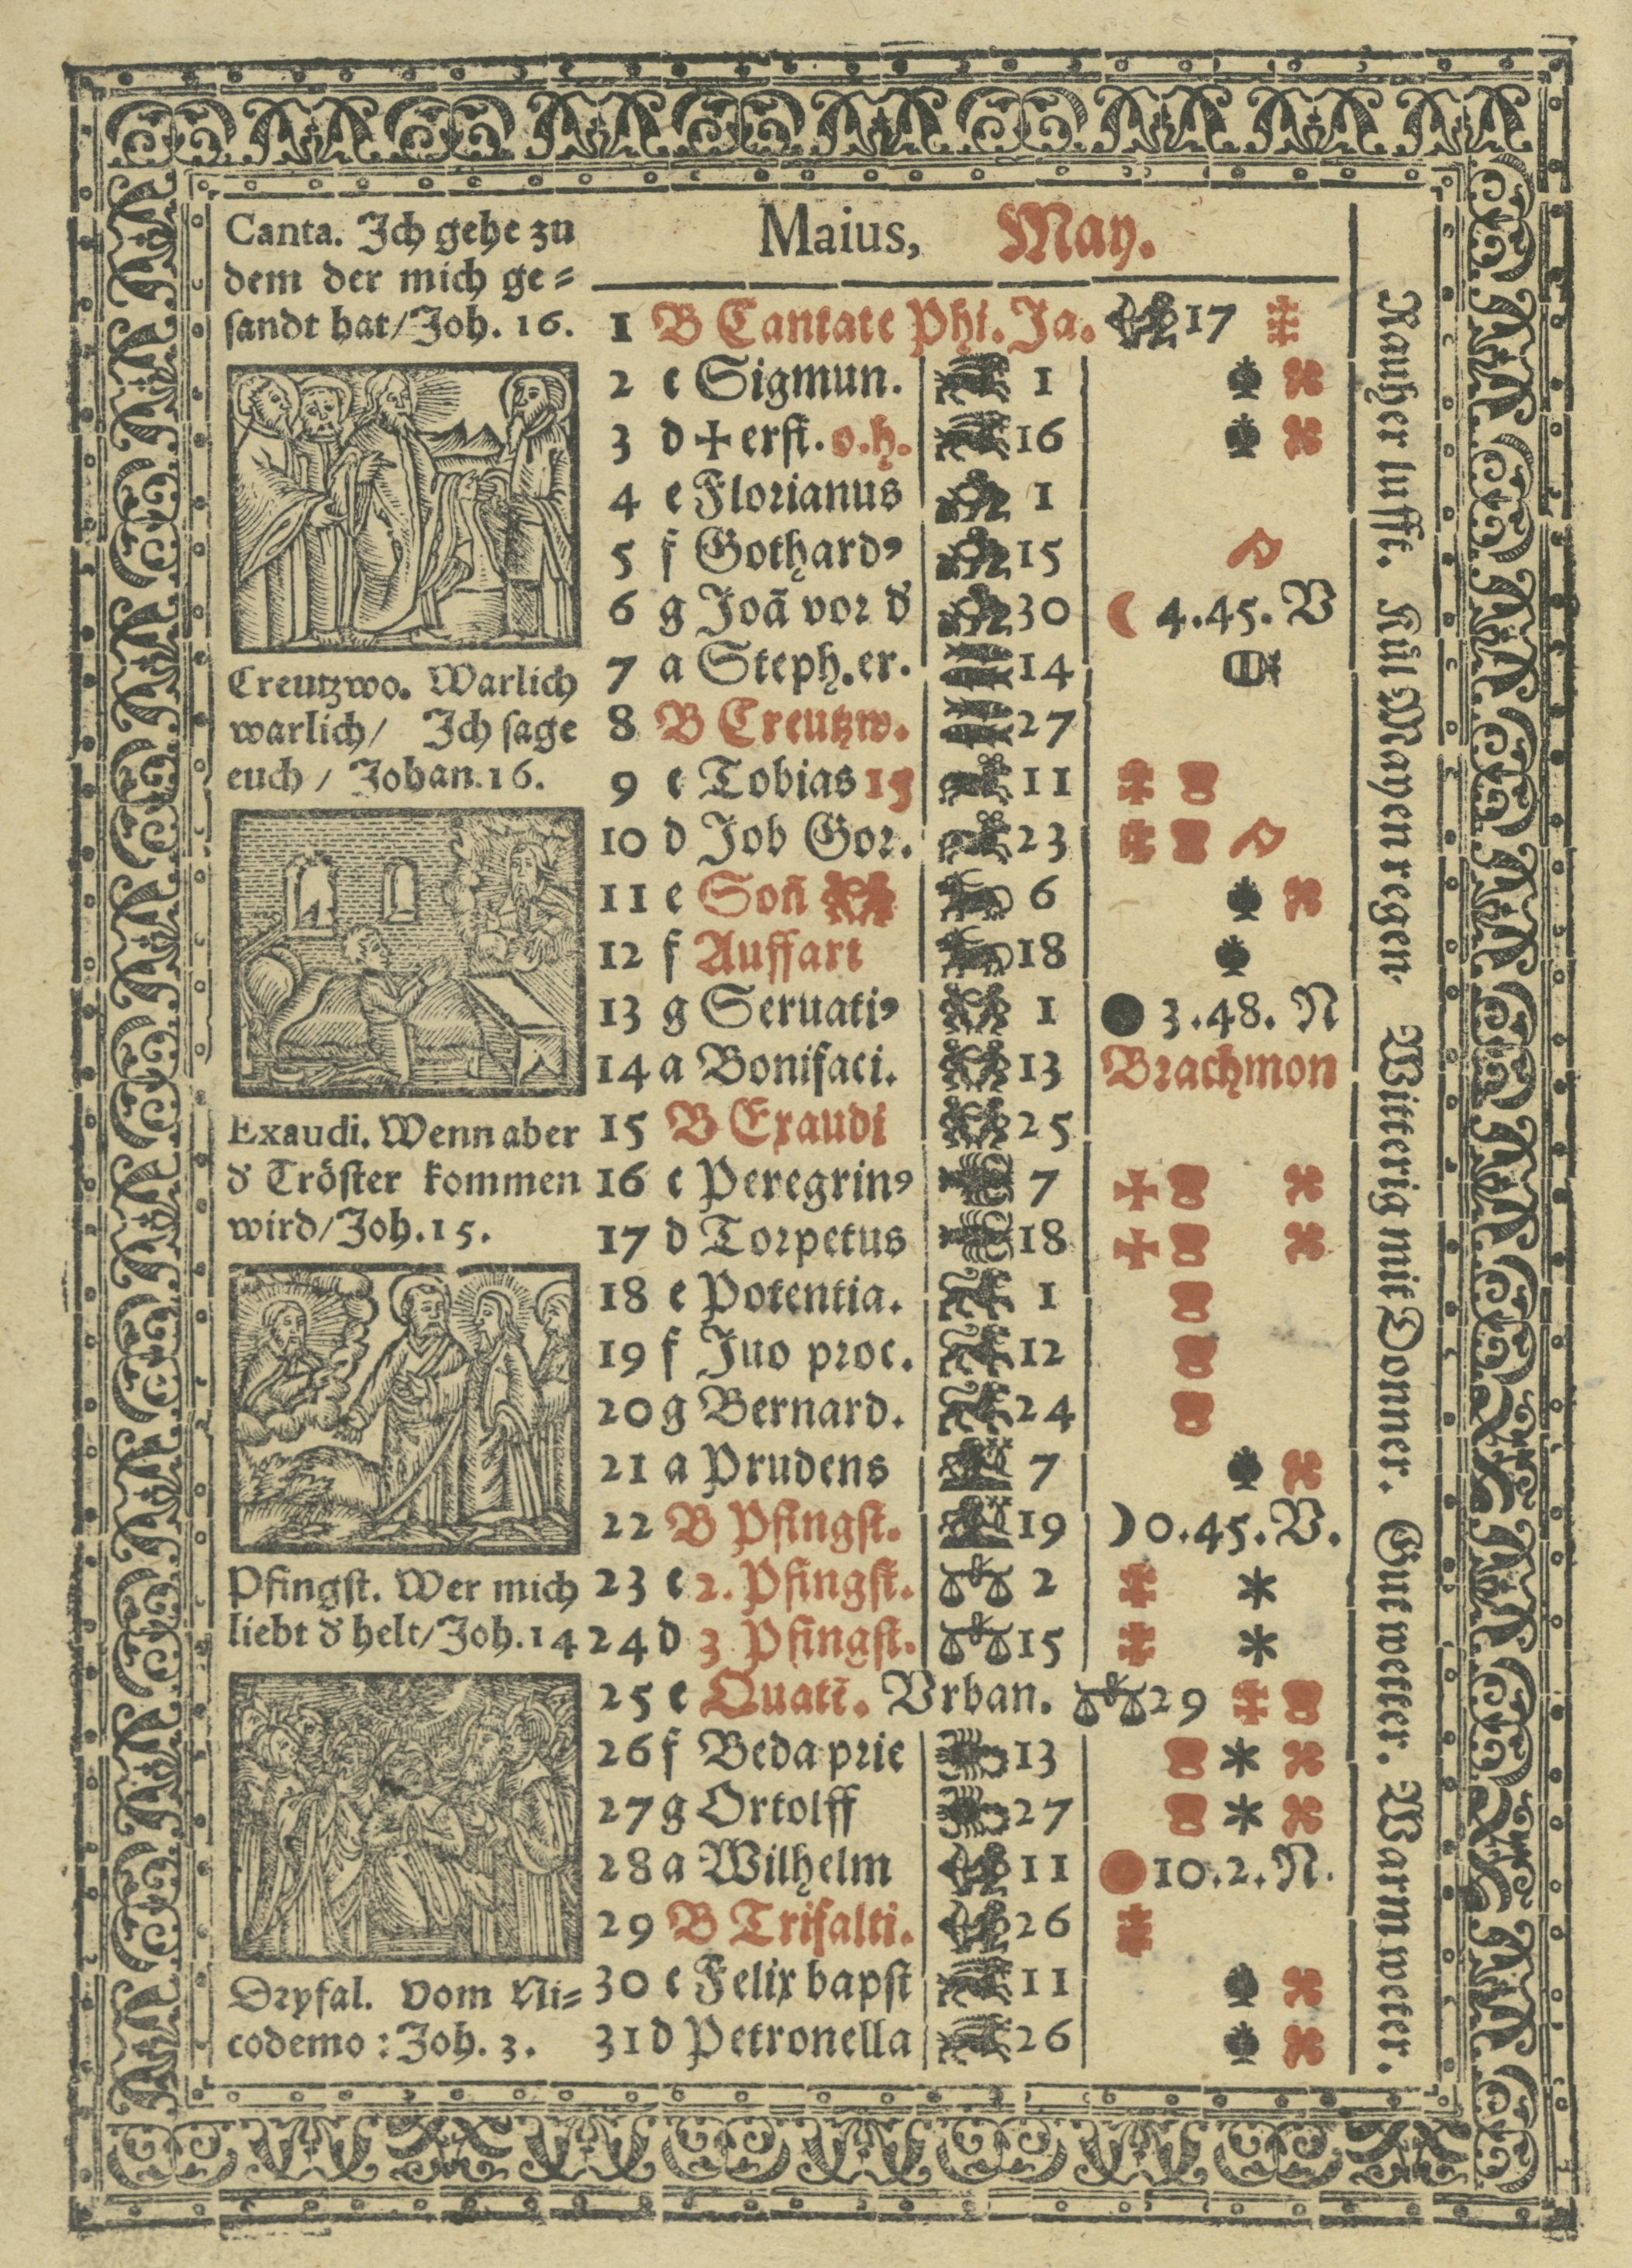 Maius, May.
Canta. Ich gehe zu
dem der mich ge⸗
sandt hat/Joh. 16.
Creutzwo. Warlich
warlich/ Ich sage
euch / Johan.16.
Exaudi. Wenn aber
d Tröster kommen
wird/Joh.15.
Pfingst. Wer mich
liebt d helt/Joh.14
Dryfal. Vom Ni⸗
codemo : Joh. 3.
1 B Cantate Phi. Ja. 17
2 c Sigmun. 1
3 d ✠ erfi. o.h. 16
4 e Florianus 1
5 f Gothardꝰ 15
6 g Joã vor d 30 4.45. V
7 a Steph.er. 14
8 B Creutzw. 27
9 c Tobias 15 11
10 d Job Gor. 23
11 e Soñ 6
12 f Auffart 18
13 g Seruatiꝰ 1 3.48. N
14 a Bonifaci. 13 Brachmon
15 B Exaudi 25
16 c Peregrinꝰ 7
17 d Torpetus 18
18 e Potentia. 1
19 f Juo proc. 12
20 g Bernard. 24
21 a Prudens 7
22 B Pfingst. 19 0.45. V.
23 c 2. Pfingst. 2
24 d 3 Pfingst. 15
25 e Quatẽ. Vrban. 29
26 f Beda prie 13
27 g Ortolff 27
28 a Wilhelm 11 10.2. N.
29 B Trifalti. 26
30 c Felix bapst 11
31 d Petronella 26
Rauher lufft. Kül Mayen regen. Witterig mit Donner. Gut wetter. Warm wetter.